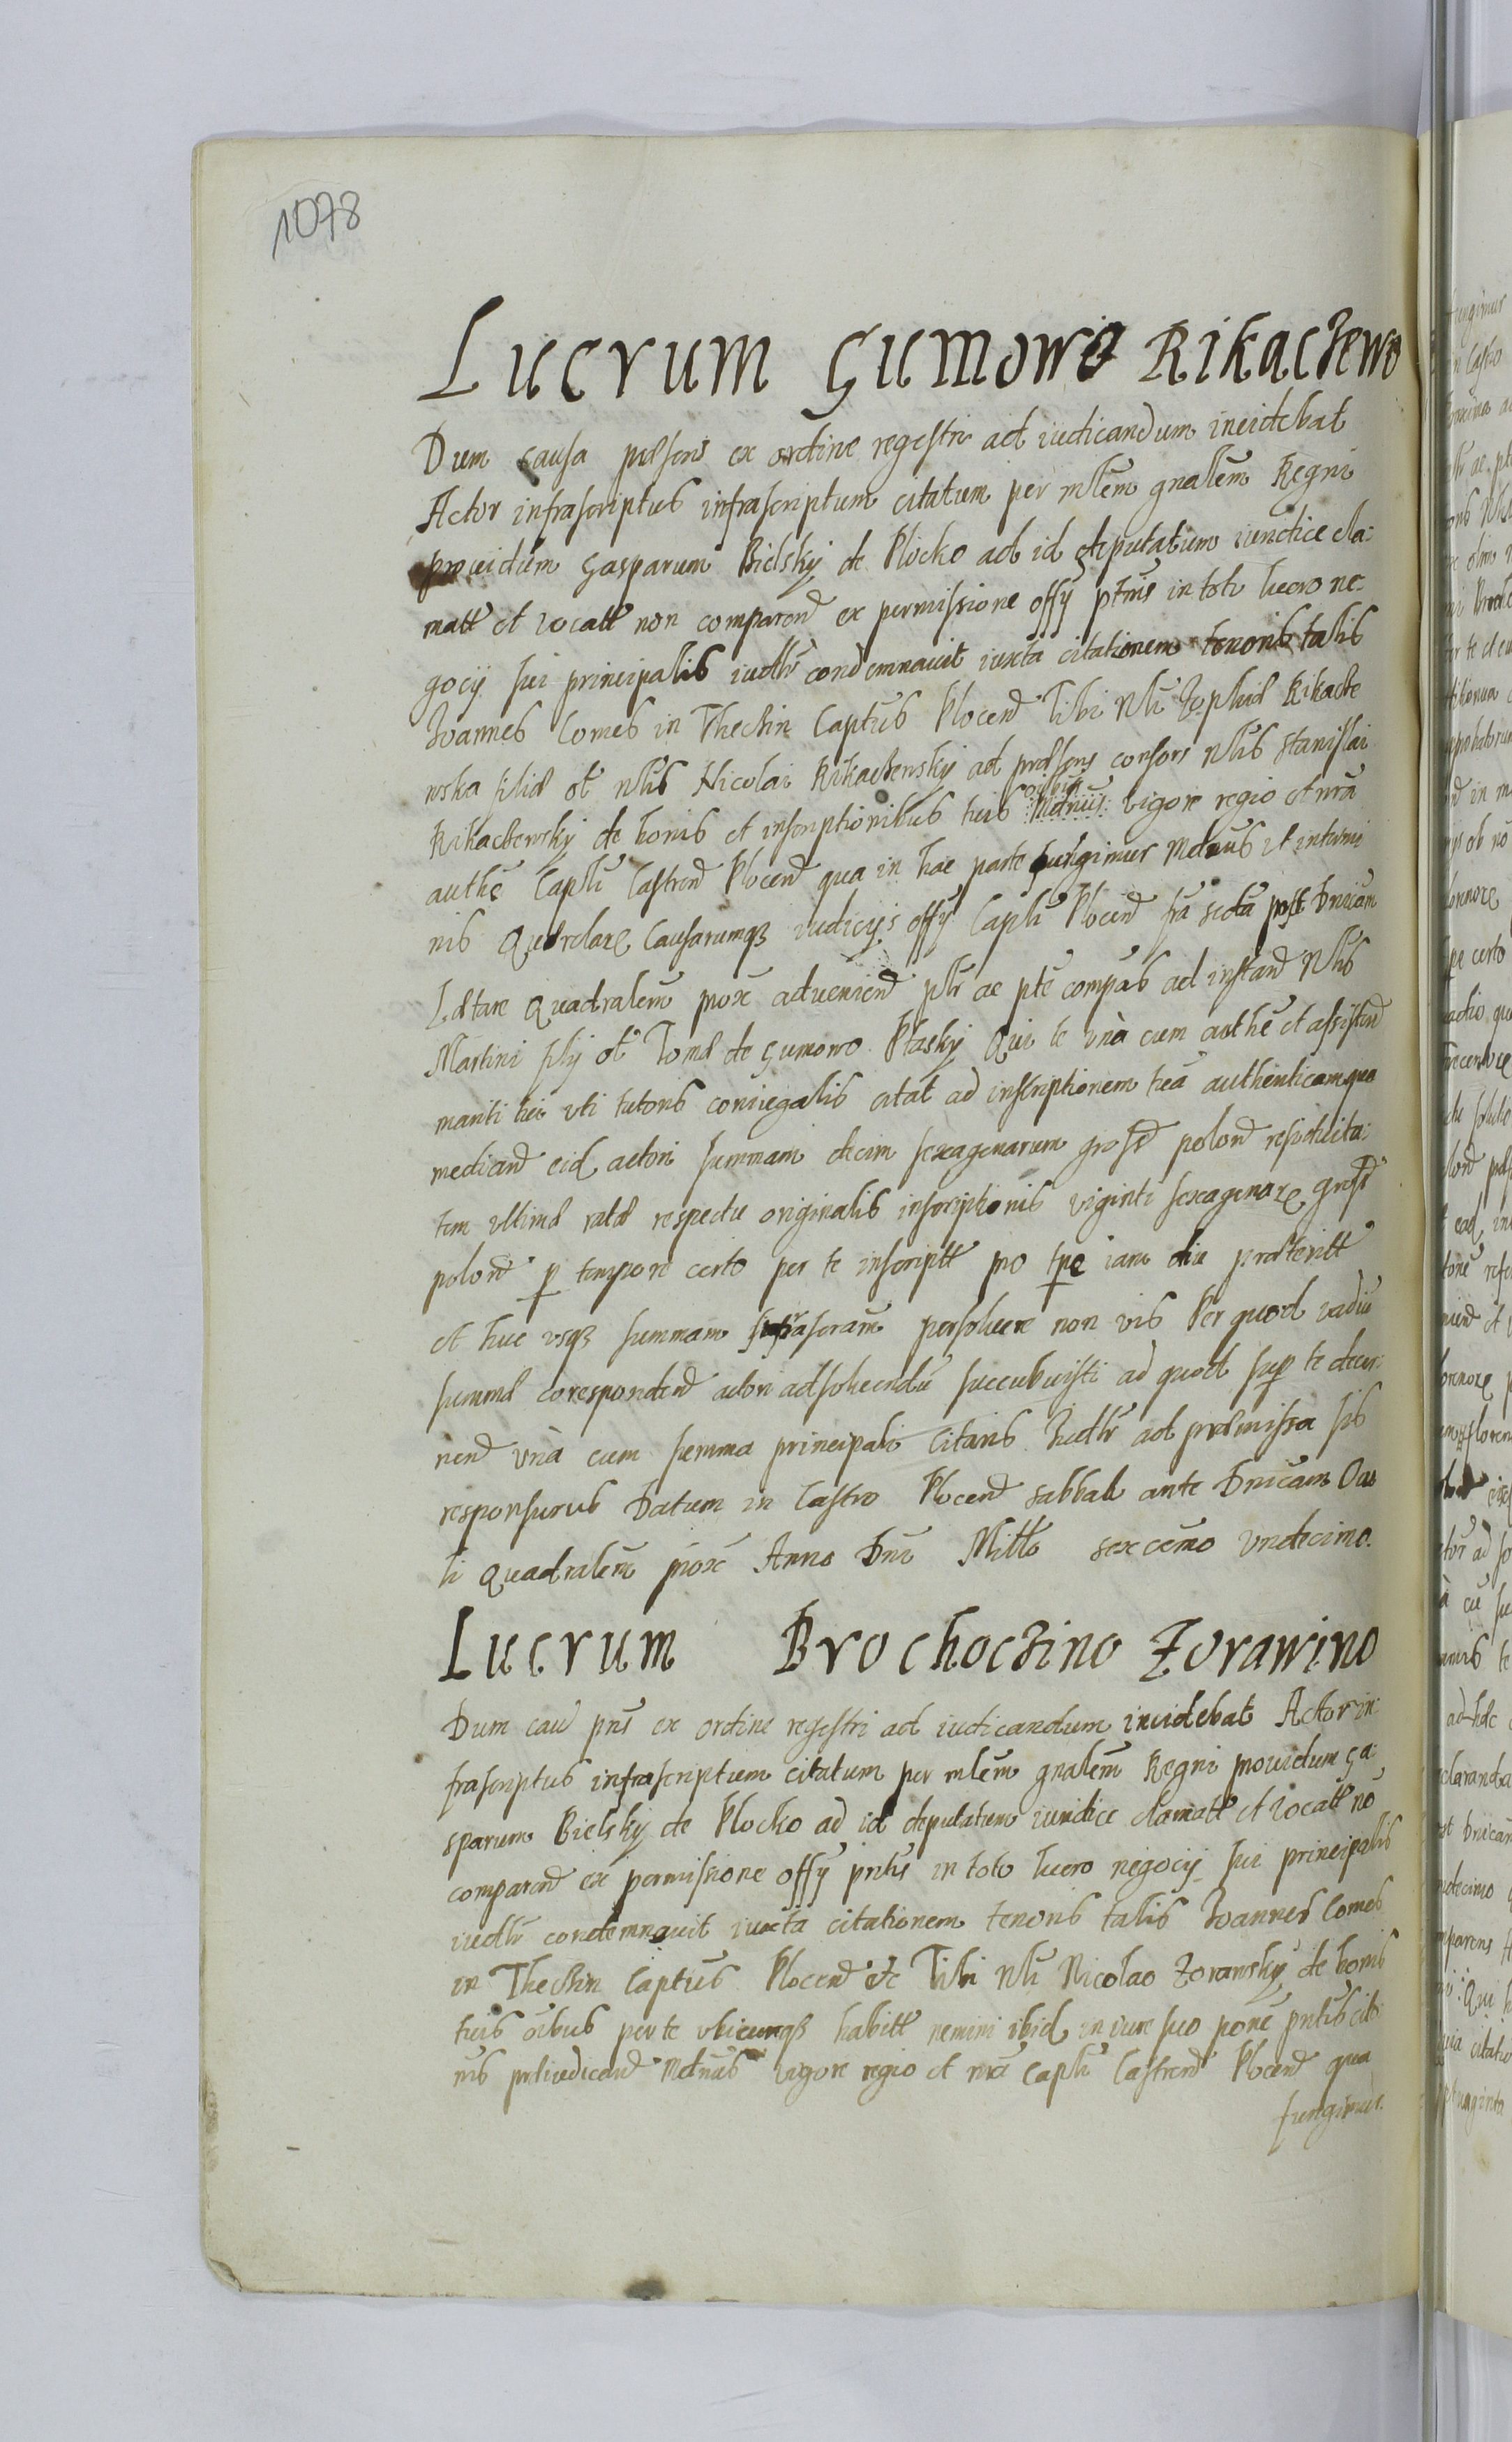 1078
Lucrum Gumowo Rikaczewo
Dum causa præsens ex ordine regestri ad iudicandum incidebat
Actor infrascriptus infrascriptum citatum per mlem gnalem Regni
prouidum Gasparum Bielsky de Plocko ad id deputatum iuridice cla:
matt et vocatt non comparen ex permissione offy ptnis in toto lucro ne-
gocy sui principalis iudlr condemnauit iuxta citationem tenoris talis
Joannes Comes in Thechin Captus Plocen Tibi Nli Zophiæ Rikacze
wska filiæ ol Nlis Nicolai Rikachewsky ad præsens consors Nlis Stanislai
Rikachewsky de bonis et inscriptionibus tuis oibus vigore regio et nra
authe Capli Castren Plocen qua in hac parte fungimur Mdmus ut in termi
nis Querelare Causarumq iudicys offy Capli Plocen fra secda post Dnicam
Lætare Quadralem prox aduenien plr ac pte compas ad instan Nlis
Martini fily ol Tomæ de Gumowo Ptasky Qui te vna cum authe et assisten
mariti tui vti tutoris coniugalis citat ad inscriptionem tua authenticam qua
median eid actori summam decim sexagenarum gross polon residuita:
tem vltimæ ratæ respectu originalis inscriptionis viginti sexagenare gross
polon p tempore certo per te inscriptt pro tpe iam diu præteritt
et huc vsq summam suprascram persoluere non vis Per quod vadiu
summæ coresponden actori adsoluendu succubuisti ad quod sup te decer:
nen vna cum summa principali Citaris Iudlr ad præmissa sis
responsurus Datum in Castro Plocen sabbato ante Dnicam Ocu
li Quadralem prox Anno Dni Millo sexcemo vndecimo.
Lucrum Brochoczino Zorawino
Dum caū pns ex ordine regestri ad iudicandum incidebat Actor in:
frascriptus infrascriptum citatum per mlem gnalem Regni prouidum Ga
sparum Bielsky de Plocko ad id deputatum iuridice clamatt et vocatt no
comparen ex permissione offy pntis in toto lucro negocy sui principalis
iudlr condemnauit iuxta citationem tenoris talis Joannes Comes
in Thechin Captus Plocen etc Tibi Nli Nicolao Zorawsky de bonis
tuis oibus per te vbicunq habitt nemini ibid in iure suo pone pntis cito
nis preiudicand Mdmus vigore regio et nra Capli Castren Plocen qua
fungimur.